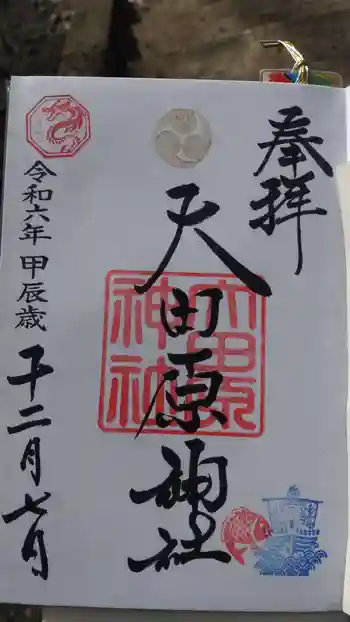 奉拝
大田原神社
大田原
神社
令和六年 甲辰歳 十二月七日